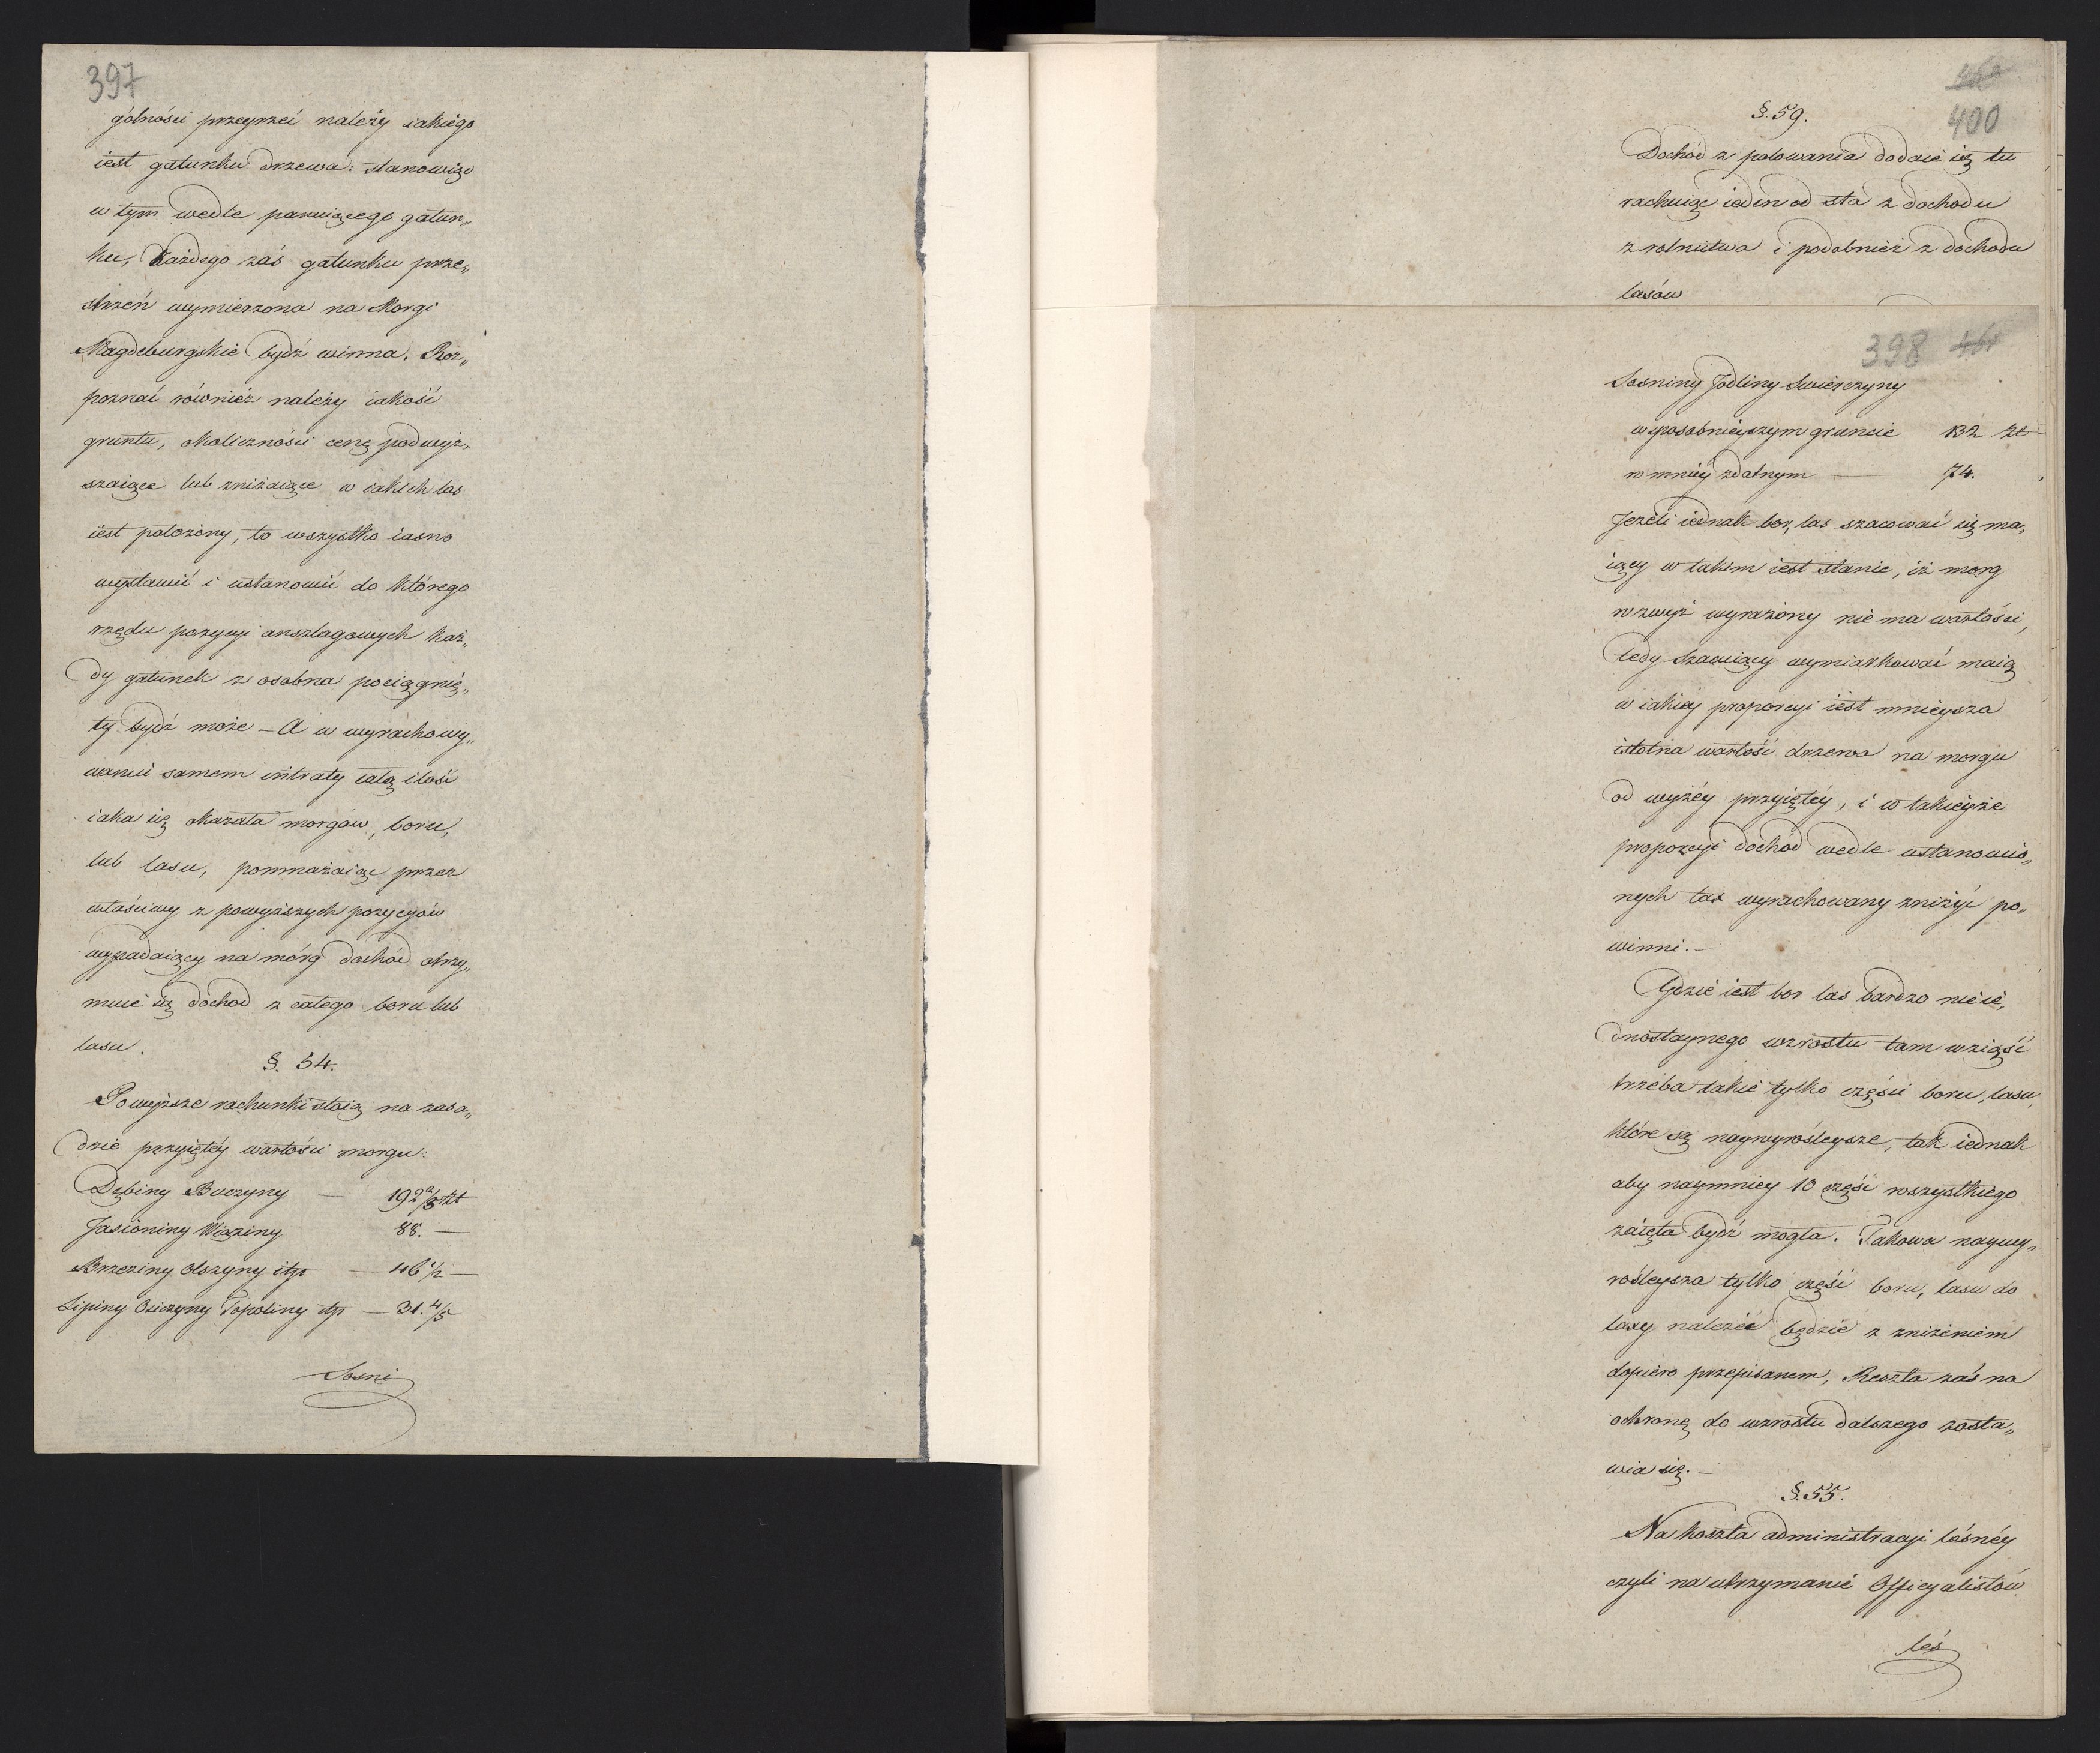 397
gólności przeyrzeć należy iakiego
iest gatunku drzewa: stanowiąc
w tym wedle panuiącego gatun„
ku, każdego zaś gatunku prze„
strzeń wymierzona na Morgi
Magdeburgskie bydź winna. Roz„
poznać również należy iakość
gruntu, okoliczności cenę podwyż„
szaiące lub zniżaiące w iakich las
iest położony, to wszystko iasno
wystawić i ustanowić do którego
rzędu pozycyi anszlagowych każ„
dy gatunek z osobna pociągnię„
ty bydź może – A w wyrachowy„
waniu samem intraty całą ilość
iaka się okazała morgów, boru,
lub lasu, pomnażaiąc przez
właściwy z powyższych pozycyów
wypadaiący na mórg dochód otrzy„
muie się dochod z całego boru lub
lasu.
§. 54.
Powyższe rachunki stoią na zasa„
dzie przyiętéy wartości morgu:
Dębiny Buczyny – 192 2/5 zł
Jasioniny Wiąziny 88. –
Brzeziny Olszyny itp – 46 1/2 –
Lipiny Osiczyny Topoliny itp – 31. 4/5
Sosni
§. 59.
400
Dochód z polowania dodaie się tu
rachuiąc ieden od sta z dochodu
z rolnictwa i podobnież z dochodu
lasów
398 461
Sosniny Jodliny Swierczyny
w sposobnieyszym gruncie 132 zł
w mniéy zdatnym – 74.
Jeżeli iednak bor, las szacować się ma„
iący w takim iest stanie, iż morg
wzwyż wyrażony nie ma wartości,
tedy Szacuiący wymiarkować maią
w iakiey proporcyi iest mnieysza
istotna wartość drzewa na morgu
od wyżéy przyiętéy, i w takieyże
proporcyi dochód wedle ustanowio„
nych tax wyrachowany zniżyć po„
winni. –
Gdzie iest bor las bardzo nieie„
dnostaynego wzrostu tam wziąść
trzeba takie tylko części boru, lasu,
które są naywyrośleysze, tak iednak
aby naymniey 10 część wszystkiego
zaięta bydź mogła. Takowa naywy„
rośleysza tylko część boru, lasu do
taxy należéć będzie z zniżeniem
dopiero przepisanem, Reszta zaś na
ochronę do wzrostu dalszego zosta„
wia się. –
§. 55.
Na koszta administracyi leśnéy
czyli na utrzymanie Officyalistów
leś